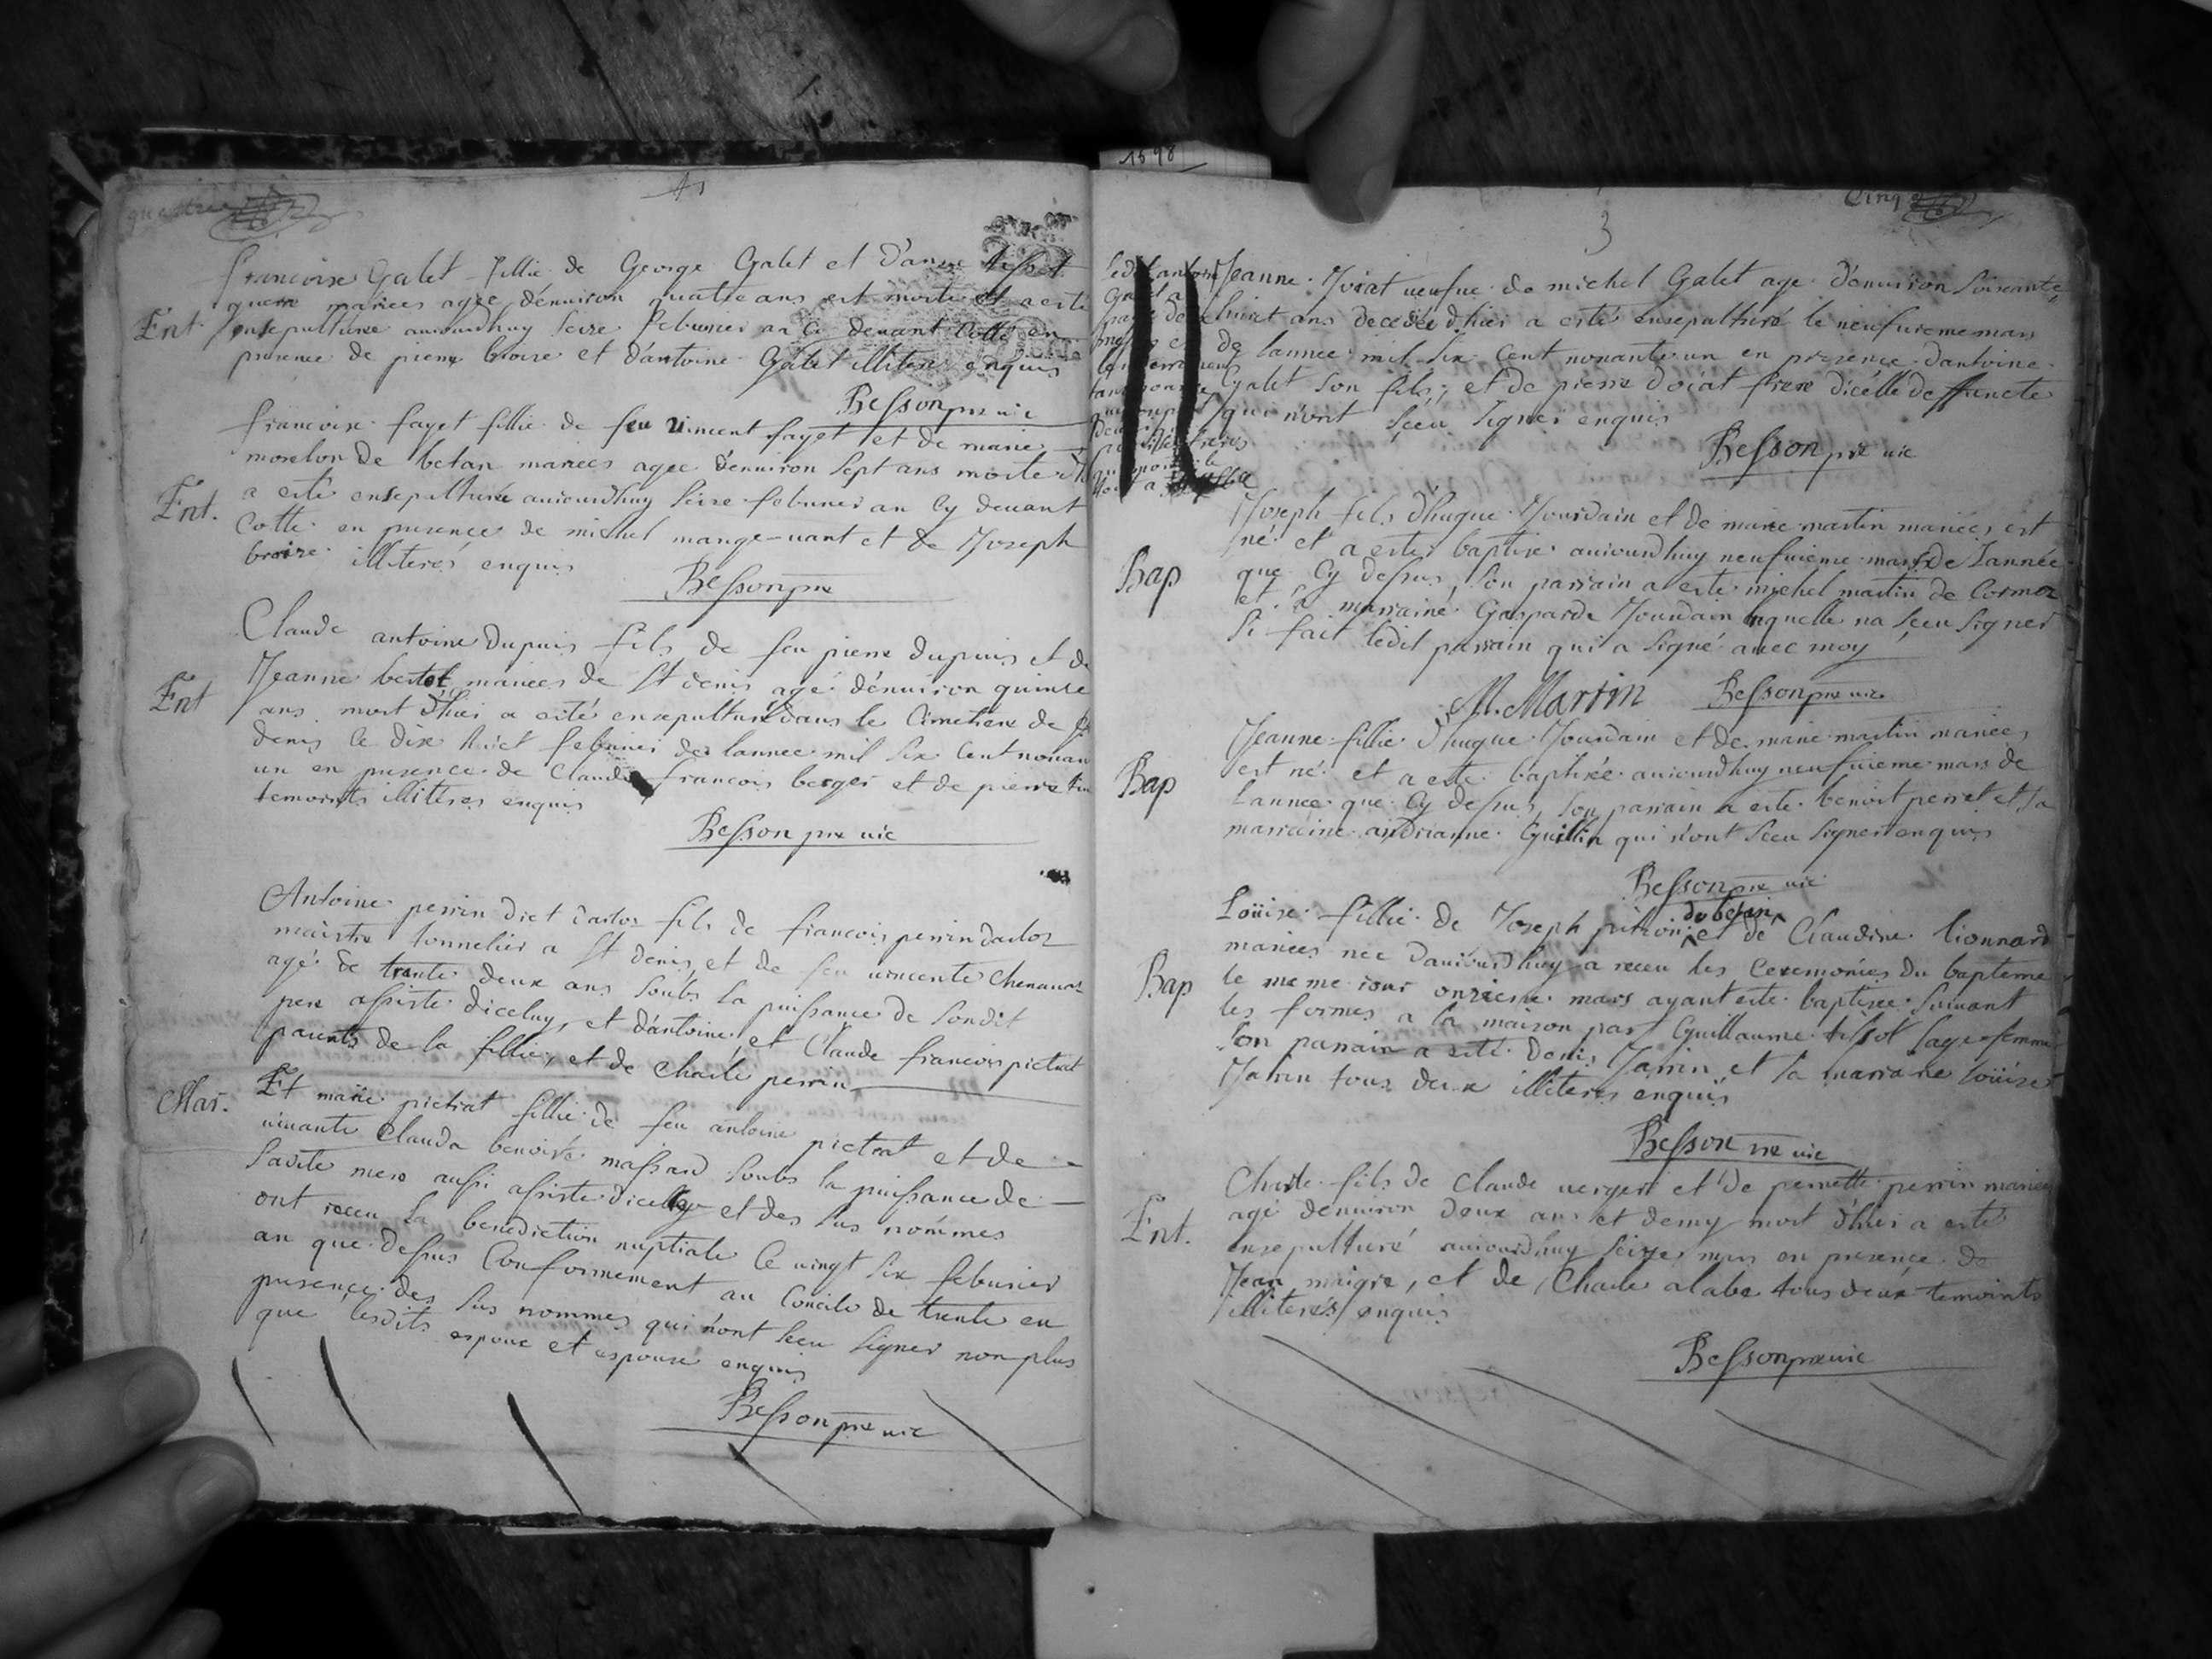 quatre
4
francoise Galet fillie de George Galet et d'anne tissot
mariees agee d'enuiron quatre ans est morte et a esté
Ent
ensepulturee auiourdhuy seize feburier an cy deuant cotté en
presence de pierre broise et d'antoine Galet illiteres enquis
Besson pre vic
francoise fayet fillie de feu vincent fayet et de marie
morelon de betan mariees agee d'enuiron sept ans morte
Ent.
a esté ensepulturee auiourdhuy seize feburier an cy deuant
Cotté en presence de michel mange-uant et de Joseph
broize illiterés enquis
Besson pre
Claude antoine Dupuis fils de feu pierre dupuis et de
Ent
Jeanne bertet mariees de St denis agé d'enuiron quinze
ans mort d'hier a esté ensepulturé dans le Cimetiere de St
denis le dix huict feburier de lannee mil six Cent nonan
un en presence de Claude francois berger et de pierre
temoints illiteres enquis
Besson pre vic
Antoine perrin dict darloz fils de francois perrin darloz
maistre tonnelier a St denis, et de feu vincente Chenaual
agé de trente deux ans soubs la puissance de sondit
pere assisté diceluy, et d'antoine, et Claude francois pictrat
parents de la fillie, et de Charle perrin
Mar.
Et marie pictrat fillie de feu antoine pictrat et de
viuante Clauda benoiste massard soubs la puissance de
Sadite mere aussi assistee dicelle et des sus nommes
ont receu la benediction nuptiale le vingt six feburier
an que dessus Conformement au Concile de trente en
presence des sus nommes qui n'ont sceu signer non plus
que lesdits espoux et espouse enquis
Besson pre vic
1698
Cinq
3
Jeanne Joiat ueufue de michel Galet age d'enuiron soixante
huict ans decedee d'hier a esté ensepulturé le neufuieme mars
de lannee mil six Cent nonante un en presence dantoine
Galet son fils, et de pierre doiat frere dicelle deffuncte
qui n'ont sceu signer enquis
Besson pre vic
Joseph fils d'hugue Jourdain et de marie martin mariees est
né et a esté baptisé auiourdhuy neufuieme mars de lannée
Bap
que Cy dessus, son parrain a esté michel martin de Cormoz
et sa marraine Gasparde Jourdain laquelle na sceu signer
si fait ledit parrain qui a signé auec moy
M. Martin Besson pre vic
Jeanne fillie d'hugue Jourdain et de marie martin mariees
Bap
est né et a esté baptisée auiourdhuy neufuieme mars de
Lannee que Cy dessus, son parrain a esté benoist perret et sa
marraine andrianne Guillin qui n'ont sceu signer enquis
Besson pre vic
Loüise fillie de Joseph pitrion et de Claudine lionnard
mariees nee dauiourdhuy a receu les Ceremonies du bapteme
Bap
le meme iour onzieme mars ayant esté baptisee suiuant
les formes a la maison par Guillaume tissot sage femme
son parrain a esté Denis Janin et sa marraine loüise
Janin tous deux illiteres enquis
Besson pre vic
Charle fils de Claude uerger et de pernette perrin mariees
Ent.
agé denuiron deux ans et demy mort d'hier a esté
ensepulturé auiourdhuy seize mars en presence de
Jean maigre, et de Charle alabe tous deux temoints
illiterés enquis
Besson pre vic